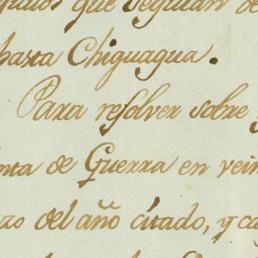 que seguian de
hasta Chiguagua.
Para resolver sobre
nta de Guerra en vein
zo del año citado, y ca